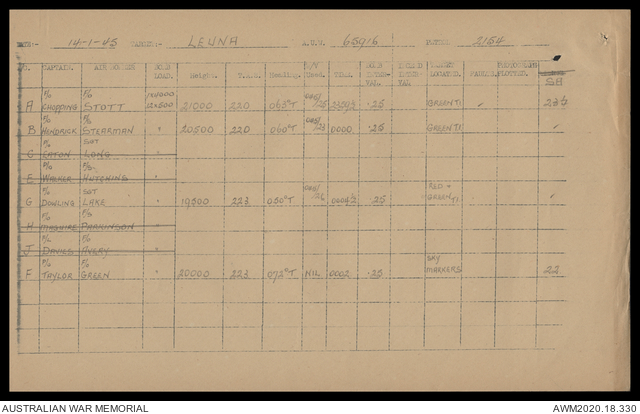 DATE:- 14-1-45 TARGET:- LEUNA A.U.W. 65916 PETROL:- 2154
CAPTAIN. AIR BOMBER BOMB LOAD. Height. T.A.S. Heading. W/V Used. T.O.R. BOMB INTERVAL FAILED PHOTOGRAPHS PLOTTED.
A F/O CHOPPING F/O STOTT 1x4000 12x500 21000 220 065°T 23.59½ .25 GREEN T.I 23½
B F/O KENDRICK F/O STEARMAN " 20500 220 060°T 0000 .25 GREEN T.I
C F/O EATON SGT LONG "
E F/O WALKER F/S HUTCHINS "
G F/O DOWLING SGT LAKE " 19500 223 050°T 0004½ .25 RED + GREEN T.I
H F/O MAGUIRE F/S PARKINSON "
J F/L DAVIES F/O AVERY "
F F/O TAYLOR F/O GREEN " 20000 223 072°T NIL 0002 .25 SKY MARKERS 22
AUSTRALIAN WAR MEMORIAL AWM2020.18.330